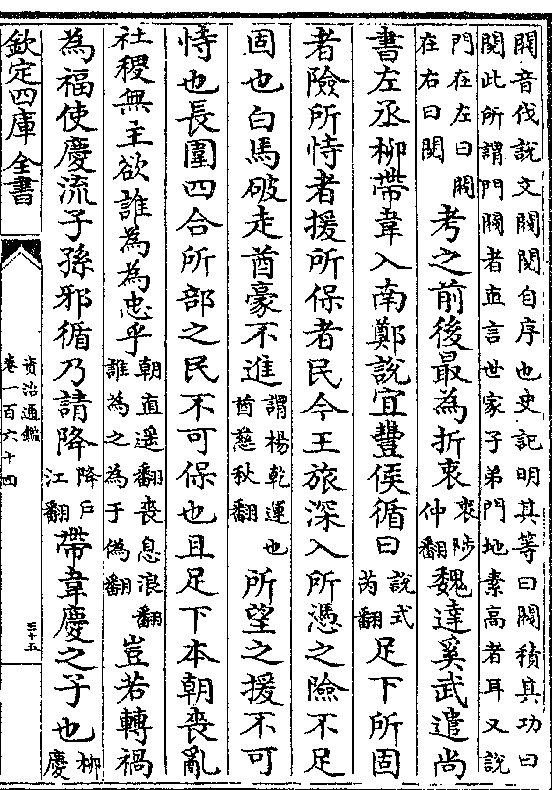 閥音伐說文閥閲自序也史記明其等曰閥積其功曰
閲此所謂門閥者直言世家子弟門地素高者耳又說
門在左曰閥在右曰閲考之前後最為折衷衷陟仲翻魏達奚武遣尚
書左丞柳帶韋入南鄭說宜豐侯循曰說式芮翻足下所固
者險所恃者援所保者民今王旅深入所憑之險不足
固也白馬破走酋豪不進謂楊乾運也酋慈秋翻所望之援不可
恃也長圍四合所部之民不可保也且足下本朝喪亂
社稷無主欲誰為為忠乎朝直遥翻喪息浪翻誰為之為于偽翻豈若轉禍
為福使慶流子孫邪循乃請降降戶江翻帶韋慶之子也柳慶
欽定四庫全書
資治通鑑
卷一百六十四
三十五